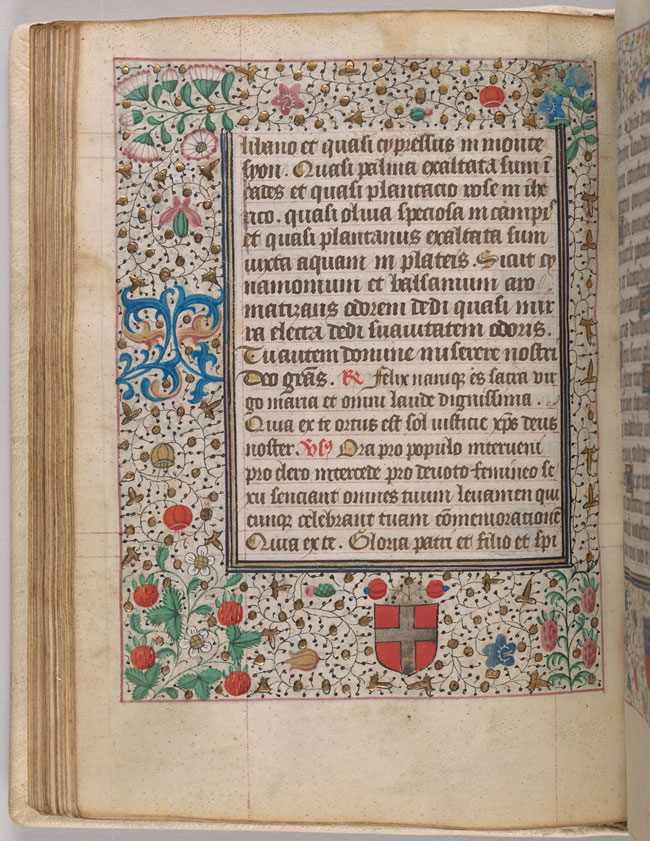 libano et quasi cypressus in monte
syon. Quasi palma exaltata sum ī
cades et quasi plantacio rose in ihe
rico. quasi oliua speciosa in campis
et quasi plantanus exaltata sum
iuxta aquam in plateis. Sicut cy
namomum et balsamum aro
matizans odorem dedi quasi mir
ra electa dedi suauitatem odoris.
Tu autem domine miserere nostri
Deo grās. R̷ Felix namque es sacra vir
go maria et omni laude dignissima.
Quia ex te ortus est sol iusticie xp̄s deus
noster. Vsꝰ Ora pro populo interueni
pro clero intercede pro deuoto femineo se
xu senciant omnes tuum leuamen qui
cunque celebrant tuam cōmemoracionē
Quia ex te. Gloria patri et filio et spi